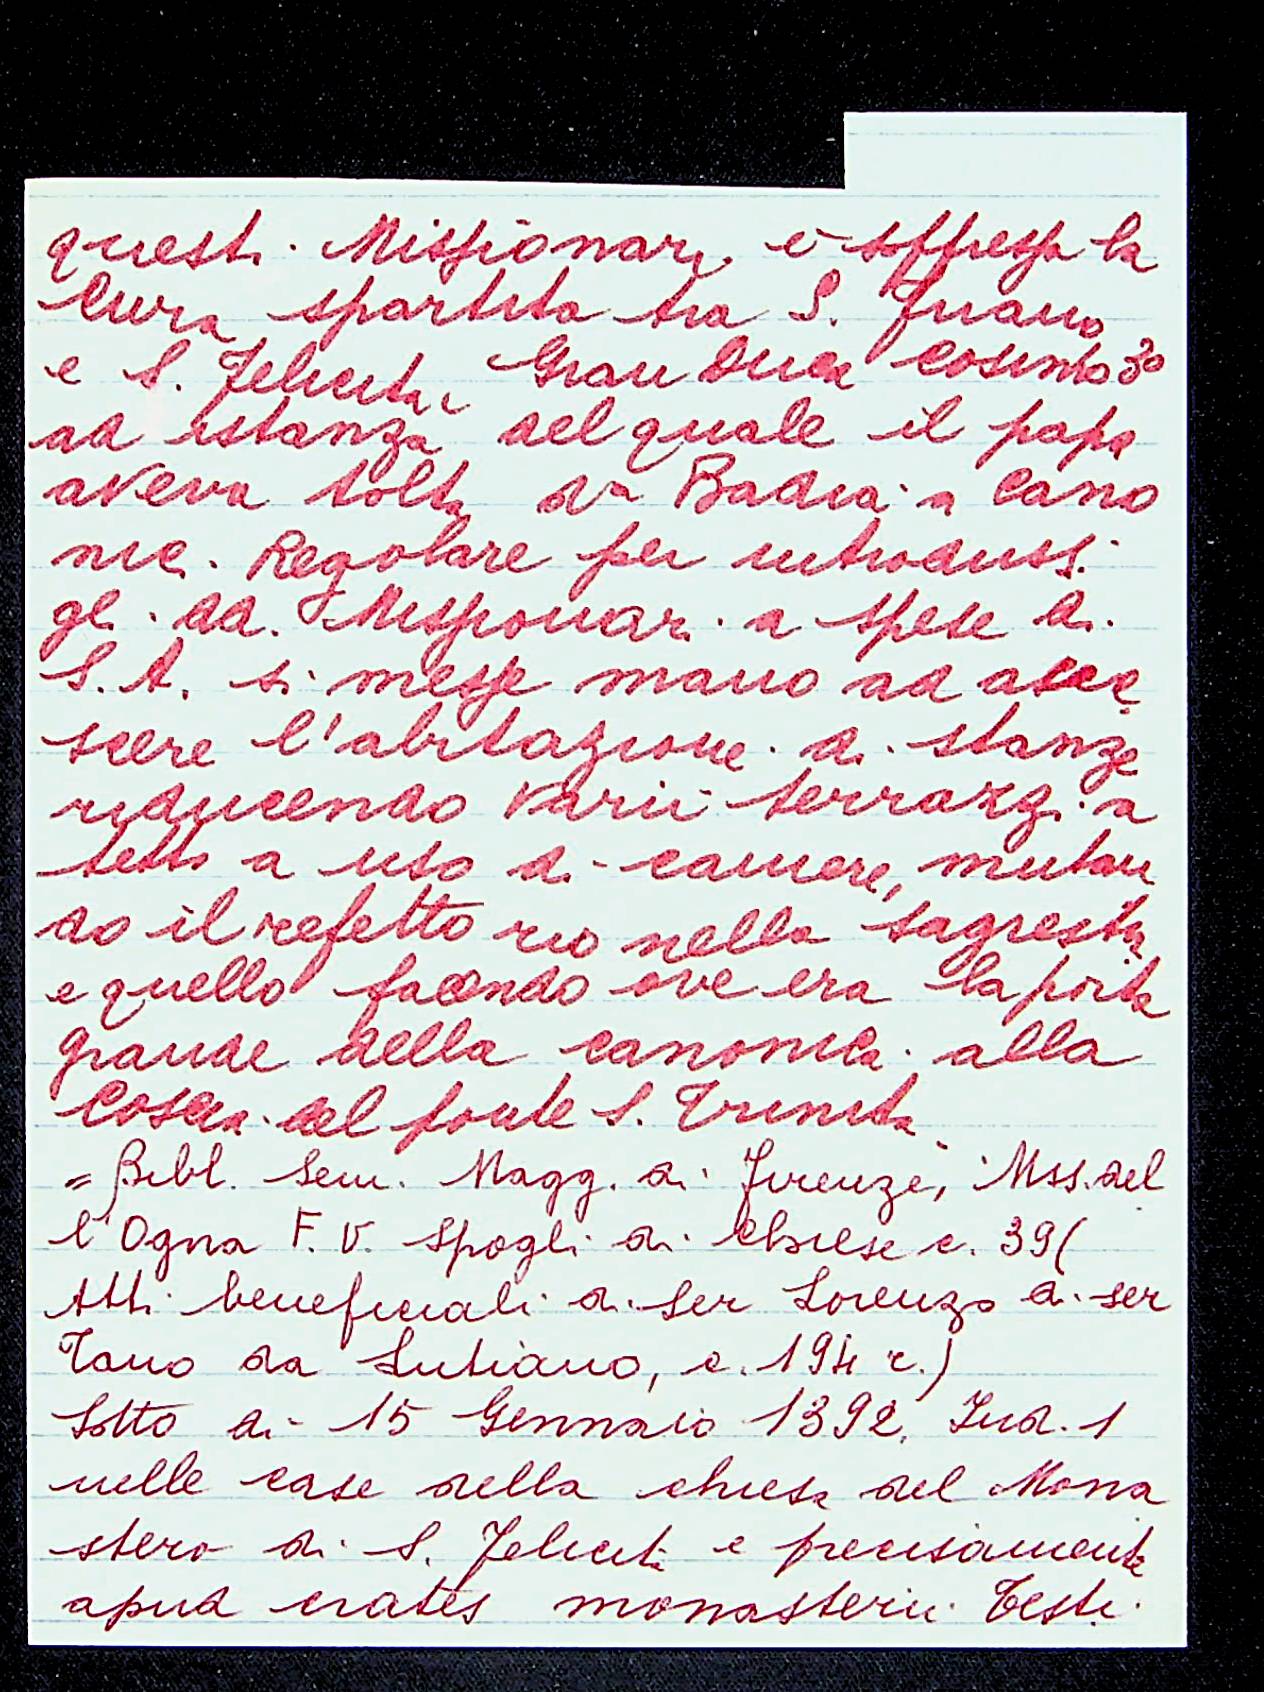 questi Missionari e soppressa la
Cura spartita tra S. Friano
e S. Felicita, Gran Duca Cosimo 3º
ad istanza del quale il papa
aveva tolta da Badia a Cano
nici Regolare per introdussi
gli dd. Missionari a spese di
S. A. si messe mano ad accre
scere l'abitazione di stanze
riducendo varii terrazzi a
tetti a uso di camere, mutan
do il refetto rio nella sagrestia
e quello facendo ove era la porta
grande della canonica alla
Coscia del ponte S. Trinita
= Bibl. Sem. Magg. di Firenze, Mss. del
l'Ogna F. V. Spogli di Chiese c. 39 (
Atti beneficiali di Ser Lorenzo di ser
Tano da Lutiano, c. 194 r.)
Sotto di 15 Gennaio 1392, Ind. 1
nelle case della chiesa del Mona
stero di S. Felicita e precisamente
apud crates monasterii. Testi